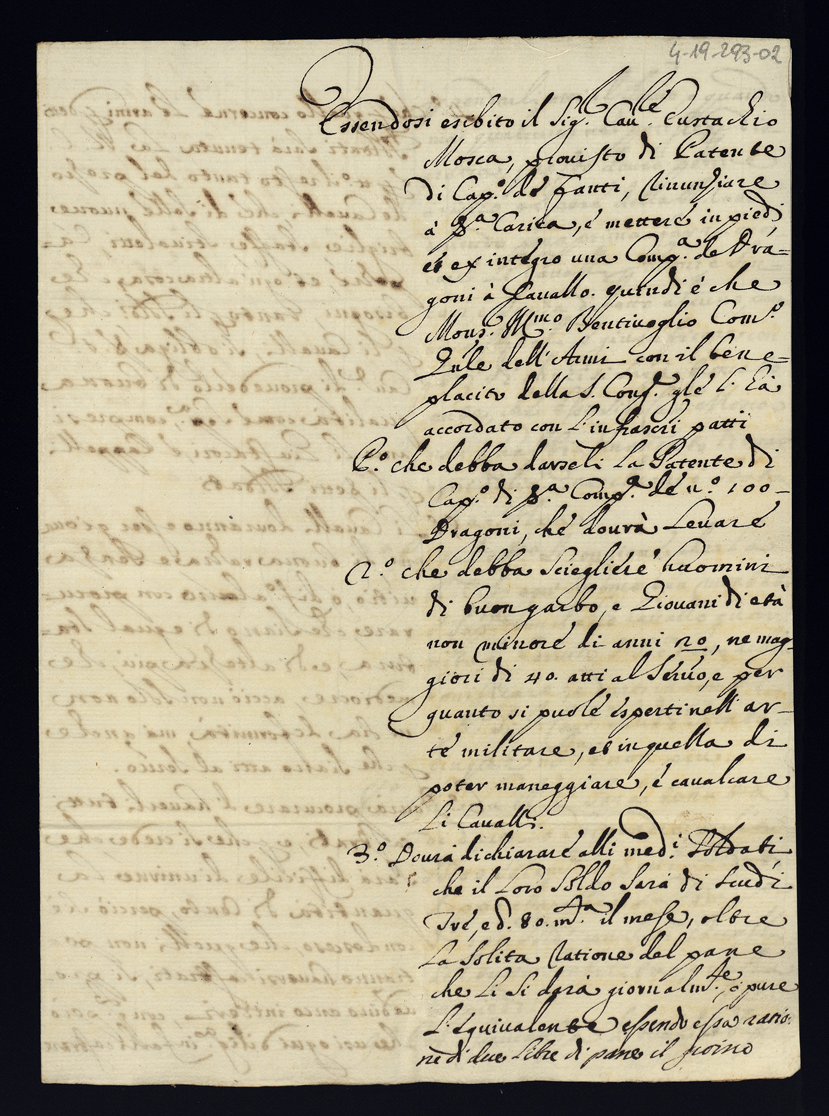 4-19-293-02
Essendosi esebito il Sig.r Cau.re Eustachio
Mosca, prouisto di Patente
di Cap.o de Fanti, rinunziare
à d.a Carica, e mettere in piedi
et ex integro una Comp.a de Dra=
goni à Cavallo. quindi è che
Mons.r Ill.mo Bentivoglio Com.o
Gñle dell'Armi con il bene=
placito della S. Cong.e gl'è l'hà
accordato con l'infrascrí patti
P.o che debba darseli la Patente di
Cap.o di d.a Comp.a de n.o 100=
Dragoni, che dourà Leuare
2.o che debba Scieglieré huomini
di buon garbo, e Giouani di età
non minoré di anni 20, ne mag=
giori di 40. atti al Seruo, e per
quanto si puole esperti nell'ar=
te militare, et in quella di
poter maneggiare, è caualcare
Li Caualli.
3.o Dourà dichiararé alli med.i Soldati
che il loro Soldo Sarà di Scudi
Tré, e d. 80. m.ta il mese, oltre
La Solita ratione del pane
che Li Si darà giornalm.te, o pure
L'Equiualente essendo essa ratio=
ne di due libre di pane il giorno